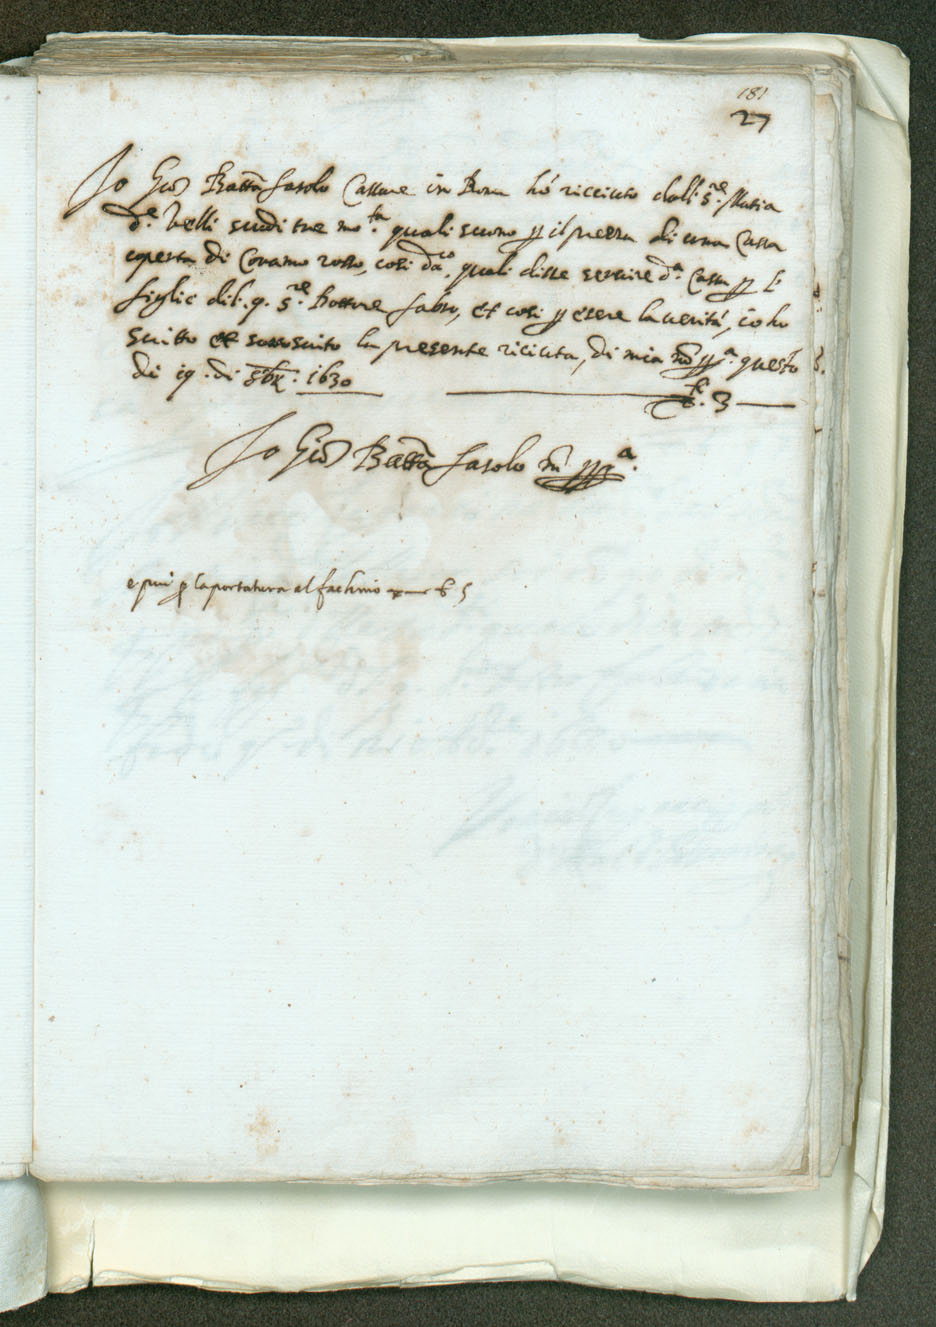 181
27
Io Gio Batta Fasolo Cassaro in Roma hó riceuto dall. S.re Mutia
d.e Velli scudi tre m.ta quali sono p il prezzo di una Cassa
coperta di Coramo rosso, cosi d'ac.o, quali disse servire d.a Cassa p le
figlie dil. q. S.re Dottore Fabro, et cosi p esere la veritá, io ho
scritto et sottoscrito la presente riceuta, di mia mo pp.a questo
di 19. di 8bre. 1630 3
Io Gio Batta Fasolo m pp.a
e piu p la portatura al fachino 5